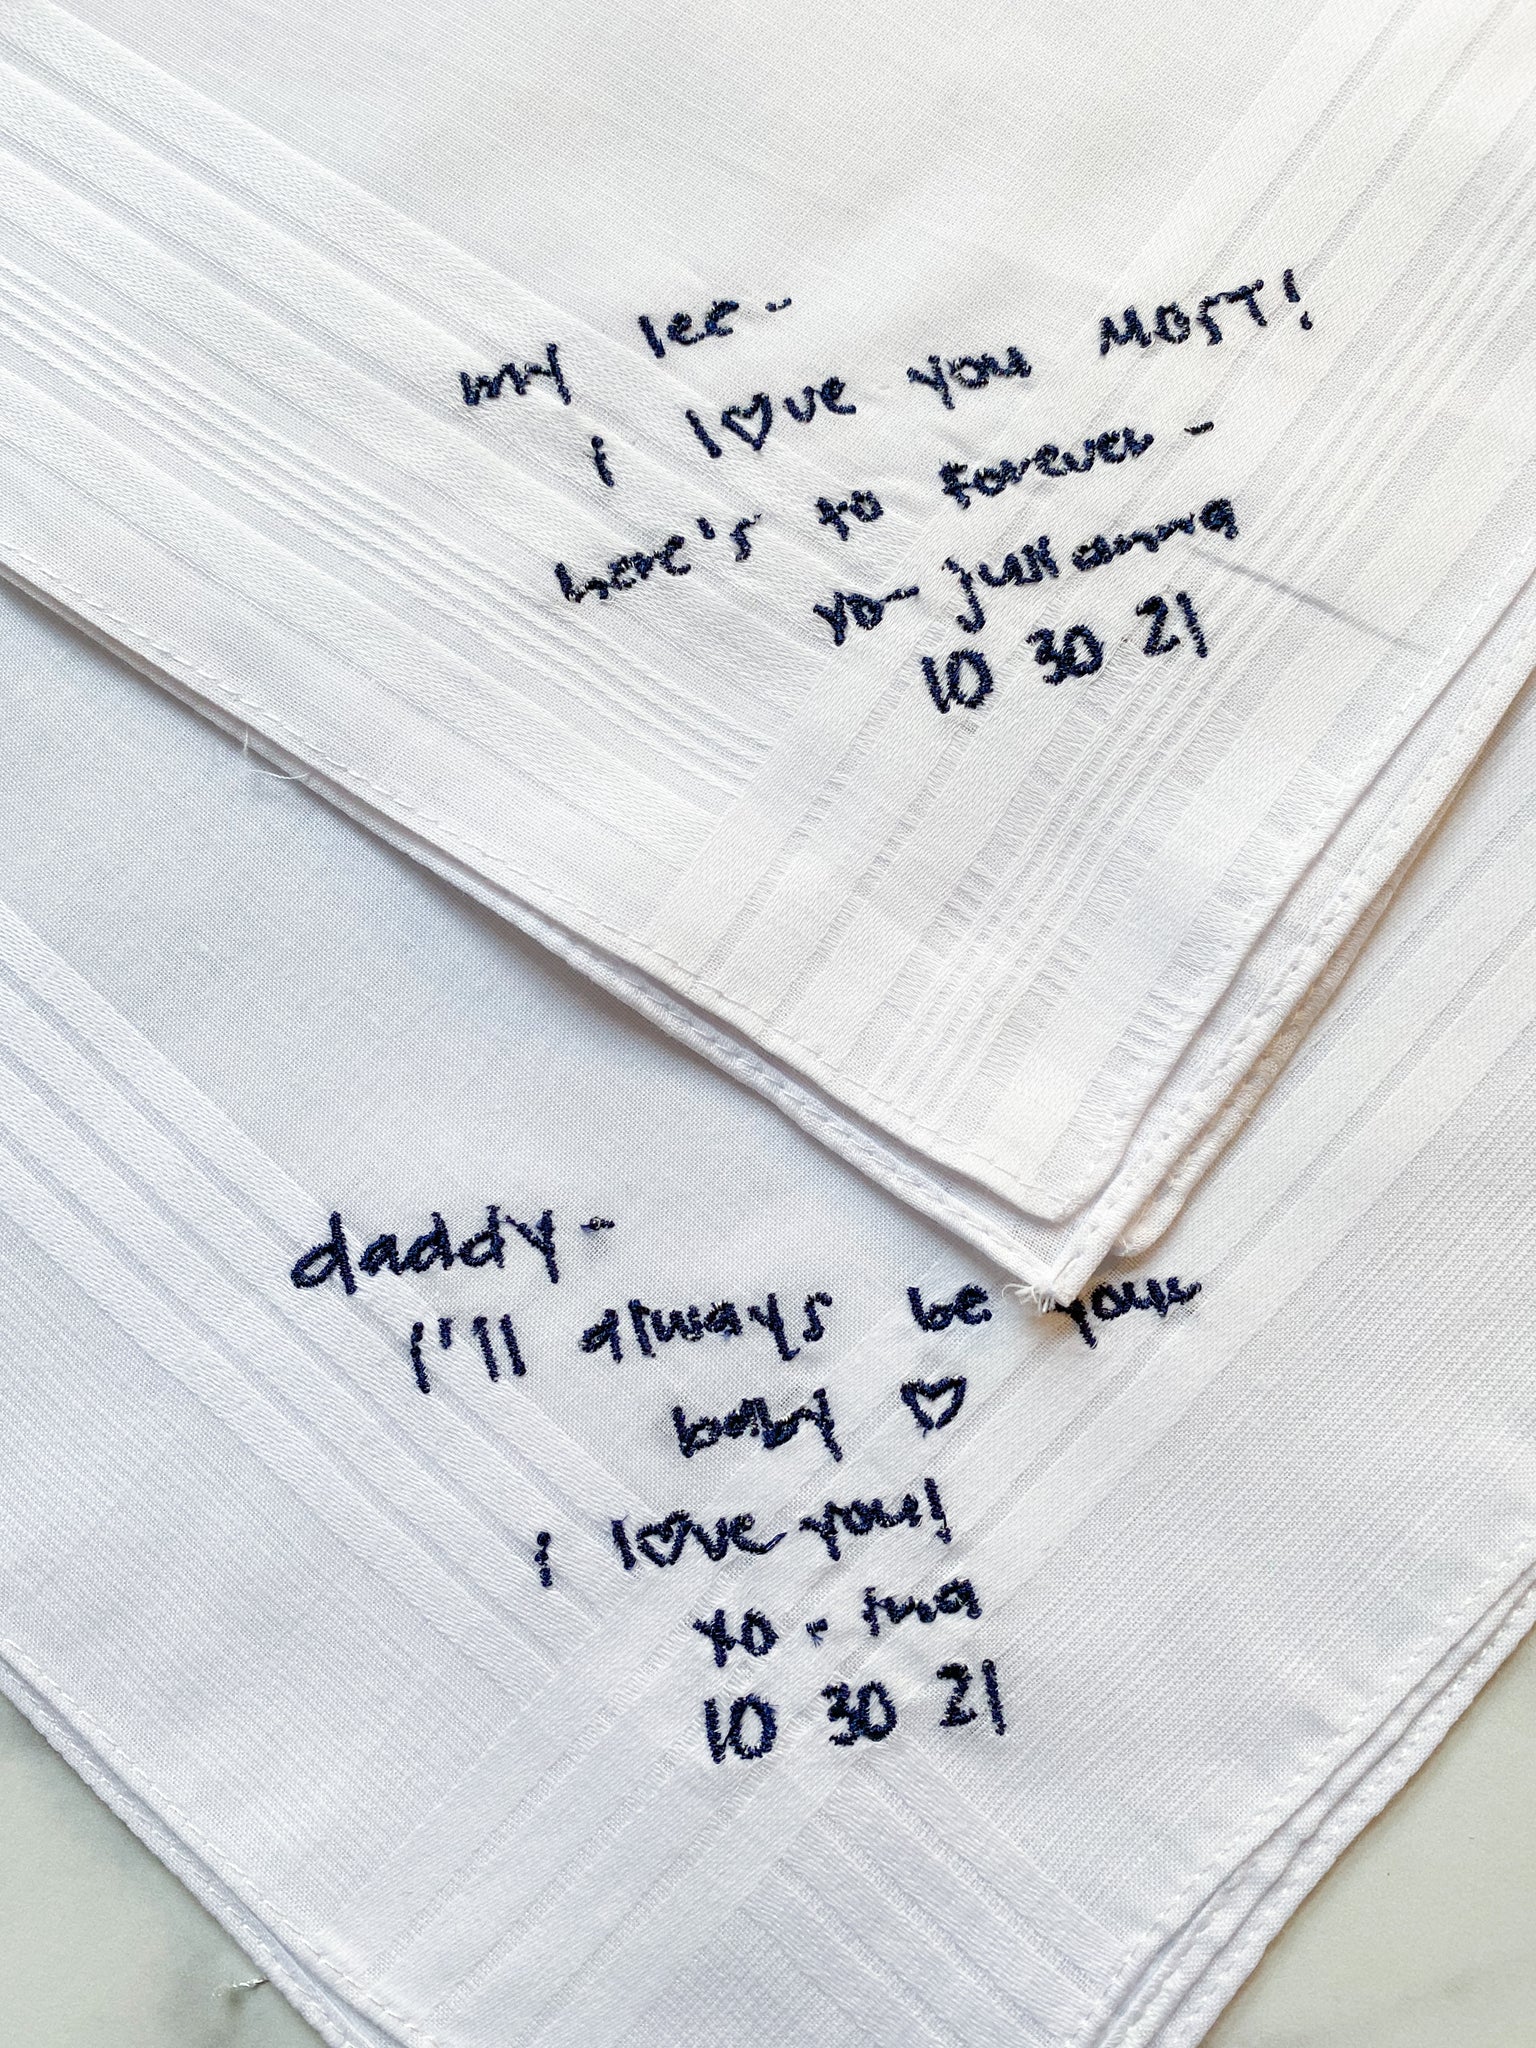 my lee-
i love you MOST!
here's to forever-
xo- julianna
10 30 21
daddy-
i'll always be your
baby ♡
i love you!
xo -
10 30 21